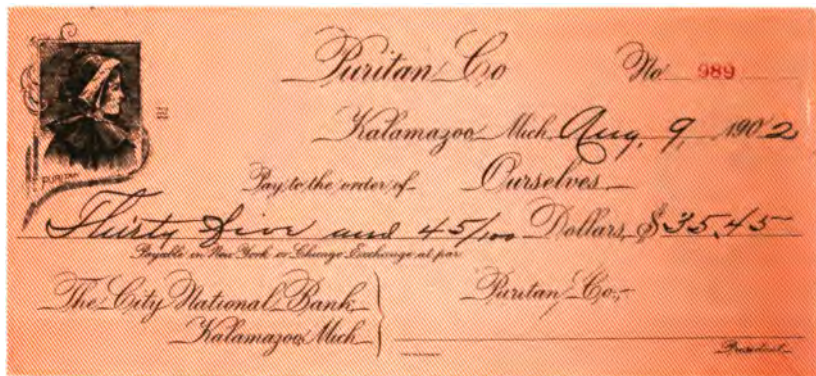 Puritan Co No 989
Kalamazoo Mich. Aug. 9, 1902
PURITAN
Pay to the order of Ourselves
Thirty Five and 45/100 Dollars, $35.45
Payable in New York or Chicago Exchange at par
The City National Bank Puritan Co.,
Kalamazoo Mich
President